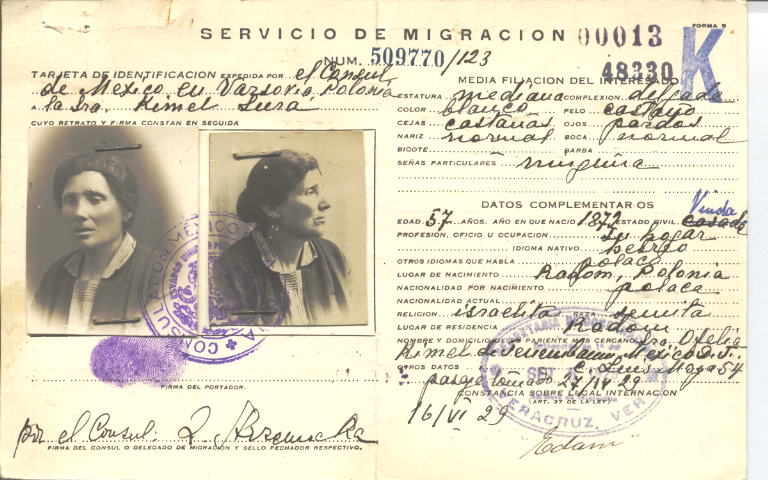 FORMA 9
SERVICIO DE MIGRACION 00013
K
NUM. 509770/123
48330
TARJETA DE IDENTIFICACION EXPEDIDA POR el Consul
de Mexico en Varsovia, Polonia
A la Sra. Kimel Sura
CUYO RETRATO Y FIRMA CONSTAN EN SEGUIDA
FIRMA DEL PORTADOR.
por el Consul:
FIRMA DEL CONSUL O DELEGADO DE MIGRACIÓN Y SELLO FECHADOR RESPECTIVO.
MEDIA FILIACION DEL INTERESADO
ESTATURA mediana COMPLEXION delgada
COLOR blanco PELO castaño
CEJAS castañas OJOS pardos
NARIZ normal BOCA normal
BIGOTE BARBA
SEÑAS PARTICULARES ninguna
DATOS COMPLEMENTARIOS
Viuda
EDAD 57 AÑOS. AÑO EN QUE NACIO 1872 ESTADO CIVIL casada
PROFESION, OFICIO U OCUPACION Su hogar
IDIOMA NATIVO hebreo
OTROS IDIOMAS QUE HABLA polaco
LUGAR DE NACIMIENTO Radom, Polonia
NACIONALIDAD POR NACIMIENTO polaca
NACIONALIDAD ACTUAL
RELIGION israelita RAZA semita
LUGAR DE RESIDENCIA Radom
NOMBRE Y DOMICILIO DEL PARIENTE MAS CERCANO Sra. Ofelia
Kimel de Mexico D.F.
OTROS DATOS C. Luis Moya 54
27/IV 29
CONSTANCIA SOBRE LEGAL INTERNACION
(ART. 37 DE LA LEY)
16/VI 29
VERACRUZ, VER.
Edam
CONSULADO DE MEXICO